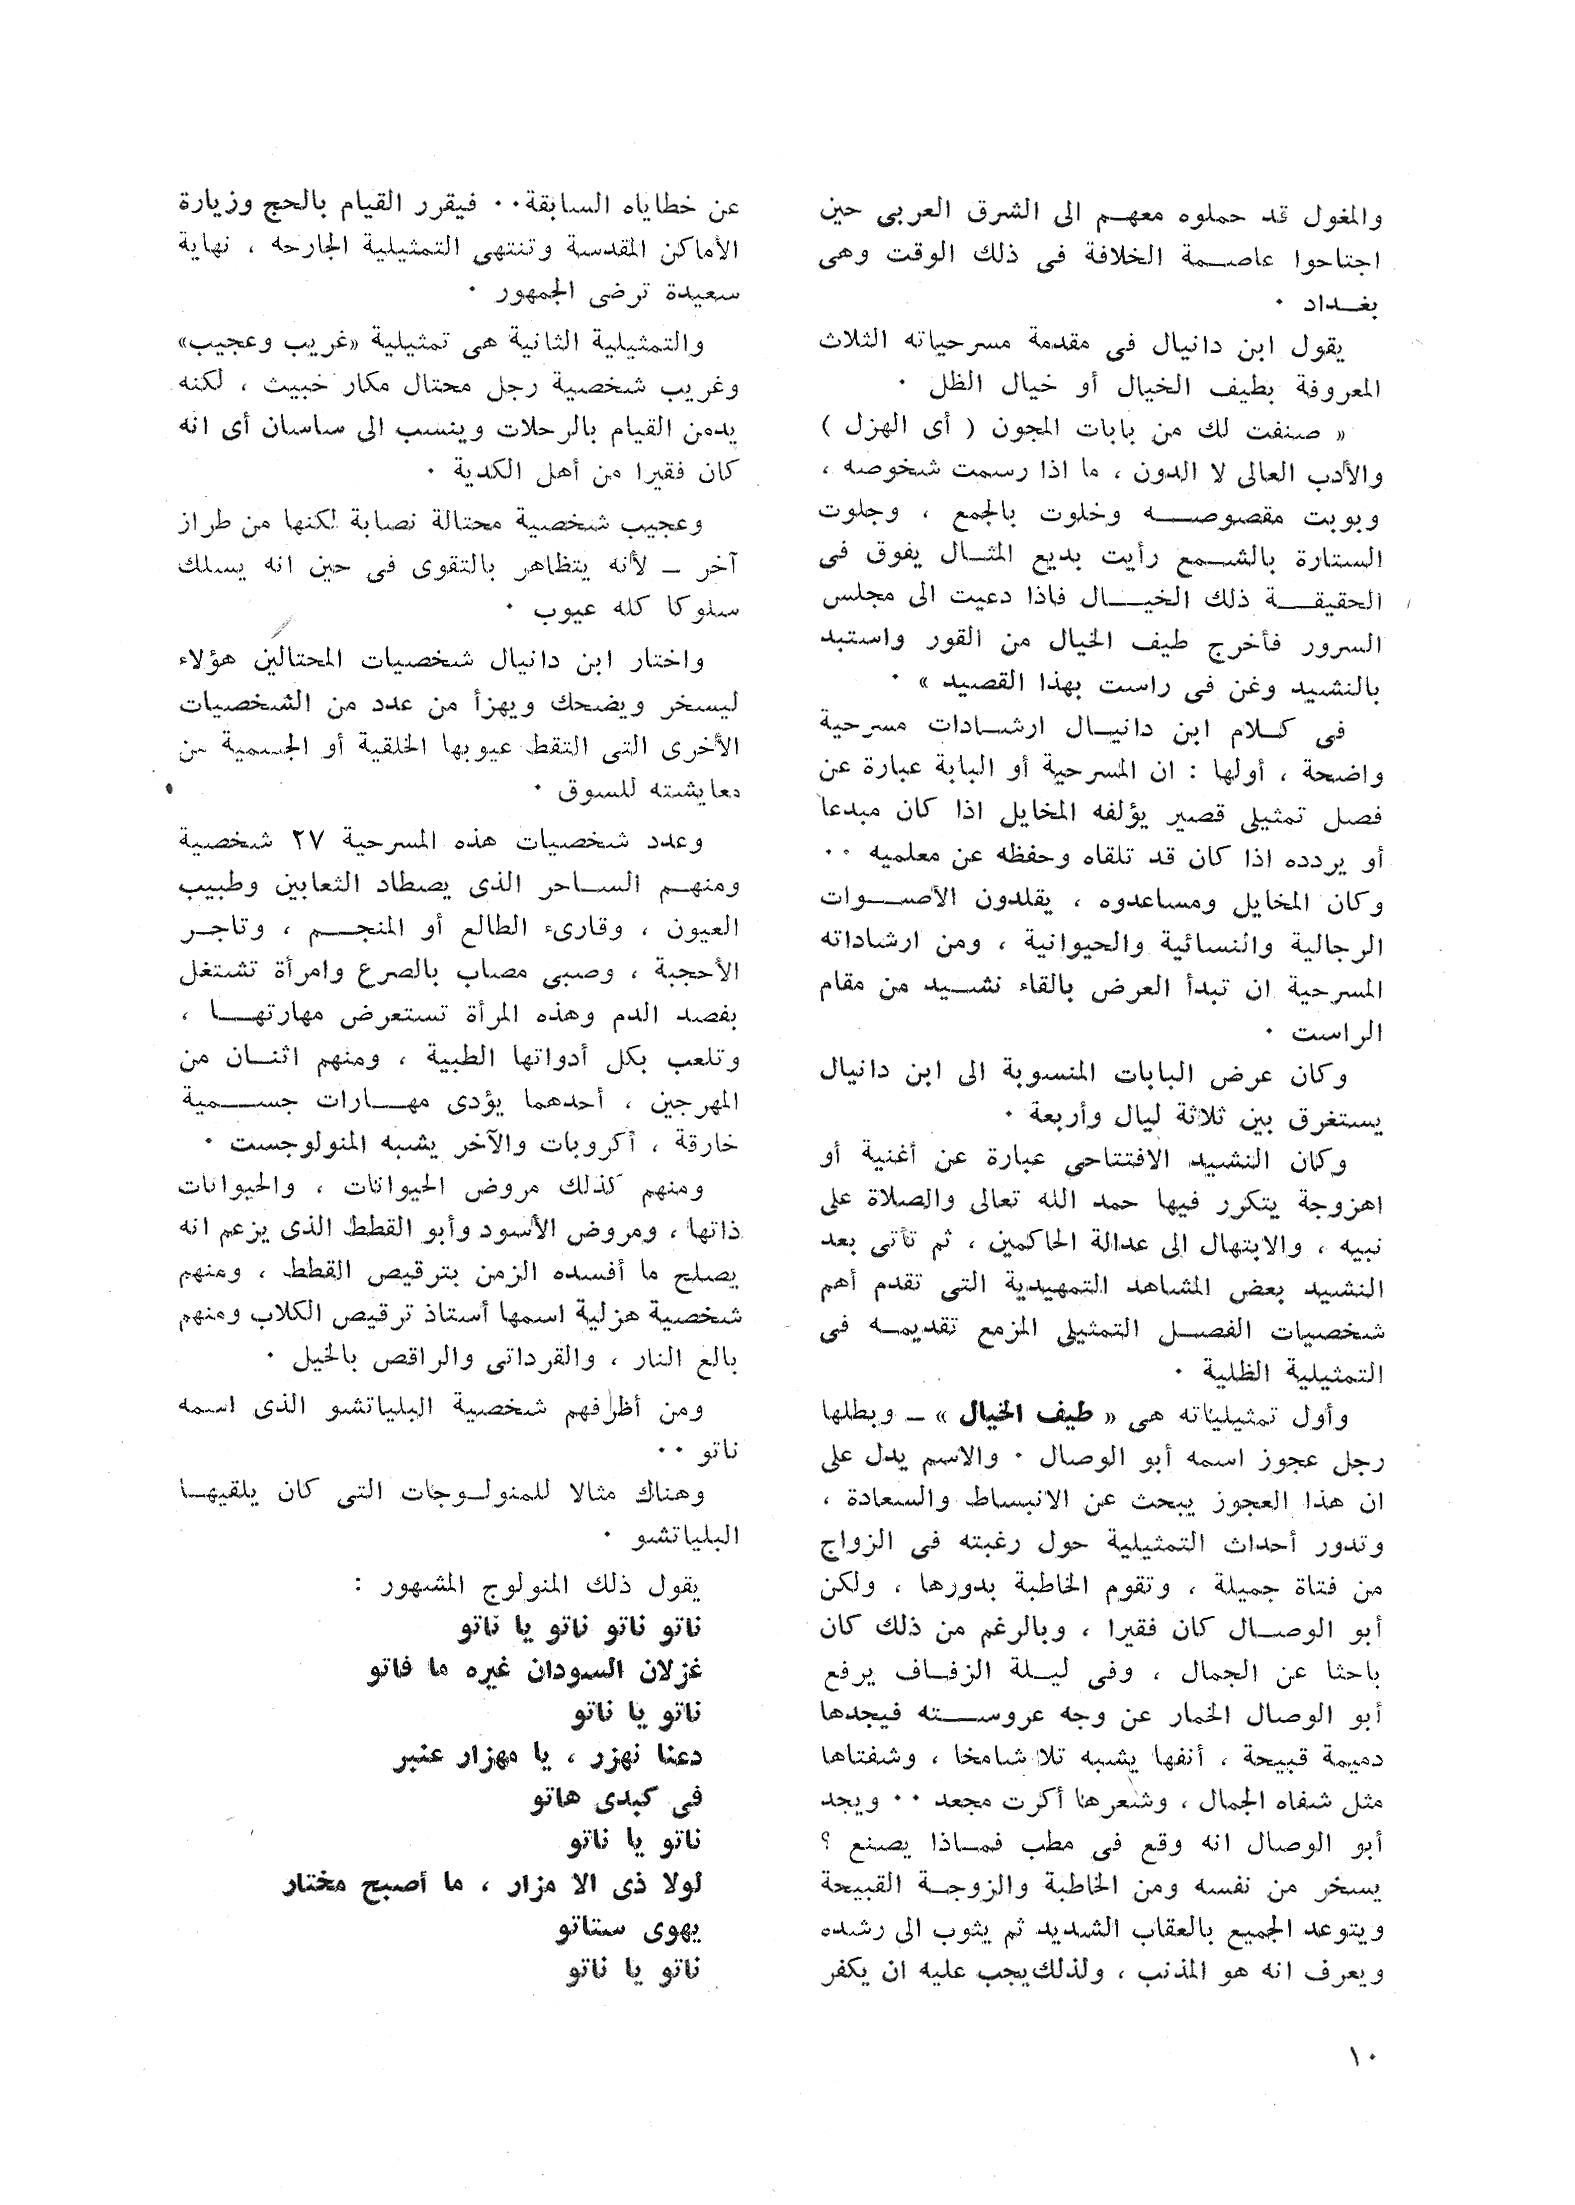 والمغول قد حملوه معهم الى الشرق العربى حين
اجتاحوا عاصمة الخلافة فى ذلك الوقت وهى
بغداد ٠
يقول ابن دانيال فى مقدمة مسرحياته الثلاث
المعروفة بطيف الخيال أو خيال الظل ٠
« صنفت لك من بابات المجون ( أى الهزل )
والأدب العالى لا الدون ، ما اذا رسمت شخوصه ،
وبوبت مقصوصه وخلوت بالجمع ، وجلوت
الستارة بالشمع رأيت بديع المثال يفوق فى
الحقيقة ذلك الخيال فاذا دعيت الى مجلس
السرور فأخرج طيف الخيال من القور واستبد
بالنشيد وغن فى راست بهذا القصيد » ٠
فى كلام ابن دانيال ارشادات مسرحية
واضحة ، أولها : ان المسرحية أو البابة عبارة عن
فصل تمثيلى قصير يؤلفه المخايل اذا كان مبدعا
أو يردده اذا كان قد تلقاه وحفظه عن معلميه ٠٠
وكان المخايل ومساعدوه ، يقلدون الأصوات
الرجالية والنسائية والحيوانية ، ومن ارشاداته
المسرحية ان تبدأ العرض بالقاء نشيد من مقام
الراست ٠
وكان عرض البابات المنسوبة الى ابن دانيال
يستغرق بين ثلاثة ليال وأربعة ٠
وكان النشيد الافتتاحى عبارة عن أغنية أو
اهزوجة يتكرر فيها حمد الله تعالى والصلاة على
نبيه ، والابتهال الى عدالة الحاكمين ، ثم تأتى بعد
النشيد بعض المشاهد التمهيدية التى تقدم أهم
شخصيات الفصل التمثيلى المزمع تقديمه فى
التمثيلية الظلية ٠
وأول تمثيلياته هى « طيف الخيال » ــ وبطلها
رجل عجوز اسمه أبو الوصال ٠ والاسم يدل على
ان هذا العجوز يبحث عن الانبساط والسعادة ،
وتدور أحداث التمثيلية حول رغبته فى الزواج
من فتاة جميلة ، وتقوم الخاطبة بدورها ، ولكن
أبو الوصال كان فقيرا ، وبالرغم من ذلك كان
باحثا عن الجمال ، وفى ليلة الزفاف يرفع
أبو الوصال الخمار عن وجه عروسته فيجدها
دميمة قبيحة ، أنفها يشبه تلا شامخا ، وشفتاها
مثل شفاه الجمال ، وشعرها أكرت مجعد ٠٠ ويجد
أبو الوصال انه وقع فى مطب فماذا يصنع ؟
يسخر من نفسه ومن الخاطبة والزوجة القبيحة
ويتوعد الجميع بالعقاب الشديد ثم يثوب الى رشده
ويعرف انه هو المذنب ، ولذلك يجب عليه ان يكفر
عن خطاياه السابقة٠٠ فيقرر القيام بالحج وزيارة
الأماكن المقدسة وتنتهى التمثيلية الجارحه ، نهاية
سعيدة ترضى الجمهور ٠
والتمثيلية الثانية هى تمثيلية «غريب وعجيب»
وغريب شخصية رجل محتال مكار خبيث ، لكنه
يدمن القيام بالرحلات وينسب الى ساسان أى انه
كان فقيرا من أهل الكدية ٠
وعجيب شخصية محتالة نصابة لكنها من طراز
آخر ــ لأنه يتظاهر بالتقوى فى حين انه يسلك
سلوكا كله عيوب ٠
واختار ابن دانيال شخصيات المحتالين هؤلاء
ليسخر ويضحك ويهزأ من عدد من الشخصيات
الأخرى التى التقط عيوبها الخلقية أو الجسمية من
معايشته للسوق ٠
وعدد شخصيات هذه المسرحية ٢٧ شخصية
ومنهم الساحر الذى يصطاد الثعابين وطبيب
العيون ، وقارىء الطالع أو المنجم ، وتاجر
الأحجبة ، وصبى مصاب بالصرع وامرأة تشتغل
بفصد الدم وهذه المرأة تستعرض مهارتها ،
وتلعب بكل أدواتها الطبية ، ومنهم اثنان من
المهرجين ، أحدهما يؤدى مهارات جسمية
خارقة ، أكروبات والآخر يشبه المنولوجست ٠
ومنهم كذلك مروض الحيوانات ، والحيوانات
ذاتها ، ومروض الأسود وأبو القطط الذى يزعم انه
يصلح ما أفسده الزمن بترقيص القطط ، ومنهم
شخصية هزلية اسمها أستاذ ترقيص الكلاب ومنهم
بالع النار ، والقرداتى والراقص بالخيل ٠
ومن أظرفهم شخصية البلياتشو الذى اسمه
ناتو ٠٠
وهناك مثالا للمنولوجات التى كان يلقيها
البلياتشو ٠
يقول ذلك المنولوج المشهور :
ناتو ناتو ناتو يا ناتو
غزلان السودان غيره ما فاتو
ناتو يا ناتو
دعنا نهزر ، يا مهزار عنبر
فى كبدى هاتو
ناتو يا ناتو
لولا ذى الا مزار ، ما أصبح مختار
يهوى ستاتو
ناتو يا ناتو
١٠